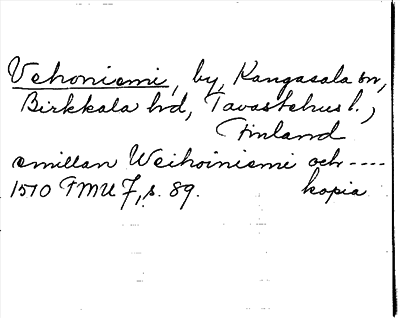 Vehoniemi, by, Kangasala sn,
Birkkala hd, Tavastehus l.,
Finland
emillan Weihoiniemi och ----
1510 FMU 7, s. 89. kopia